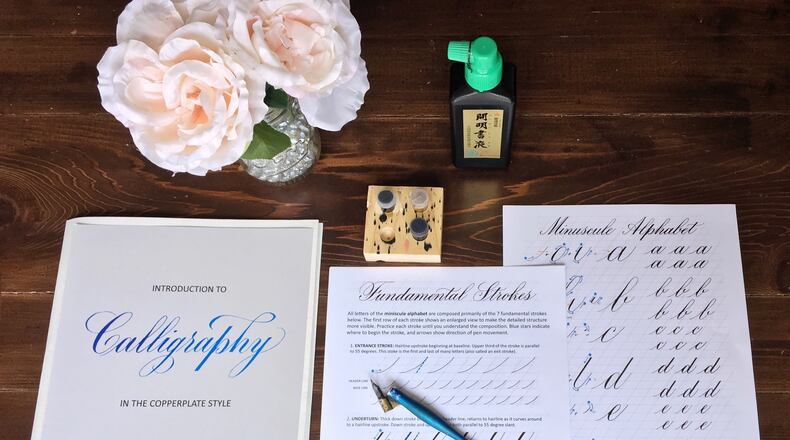 開明書液
INTRODUCTION TO
Calligraphy
IN THE COPPERPLATE STYLE
Fundamental Strokes
All letters of the miniscule alphabet are composed primarily of the 7 fundamental strokes
below. The first row of each stroke shows an enlarged view to make the detailed structure
more visible. Practice each stroke until you understand the composition. Blue stars indicate
where to begin the stroke, and arrows show direction of pen movement.
1. ENTRANCE STROKE: Hairline upstroke beginning at baseline. Upper third of the stroke is parallel
to 55 degrees. This stroke is the first and last of many letters (also called an exit stroke).
HEADER LINE
BASE LINE
2. UNDERTURN: Thick down stroke
der line, returns to hairline as it curves around
to a hairline upstroke. Down stroke and up
55 degree slant.
Minuscule Alphabet
a a a a
a a a
b b b b
b b b
c c c c
c c c
d d d d
d d d
e e e e
e e e